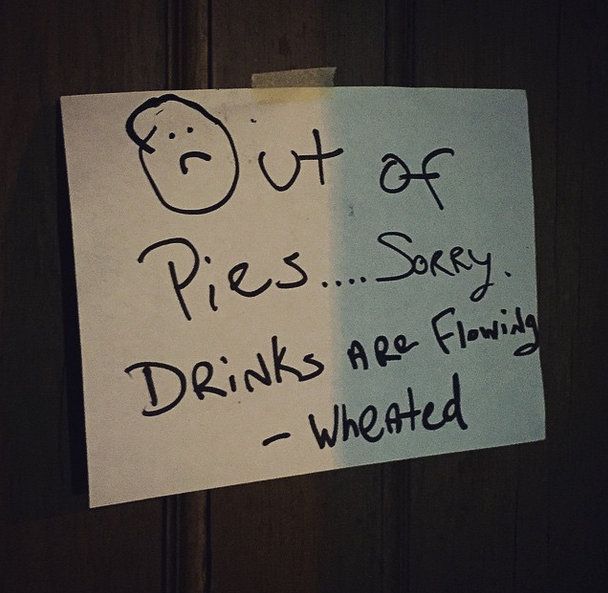 Out of
Pies....Sorry.
DRiNKs ARe Flowing
- WheATed